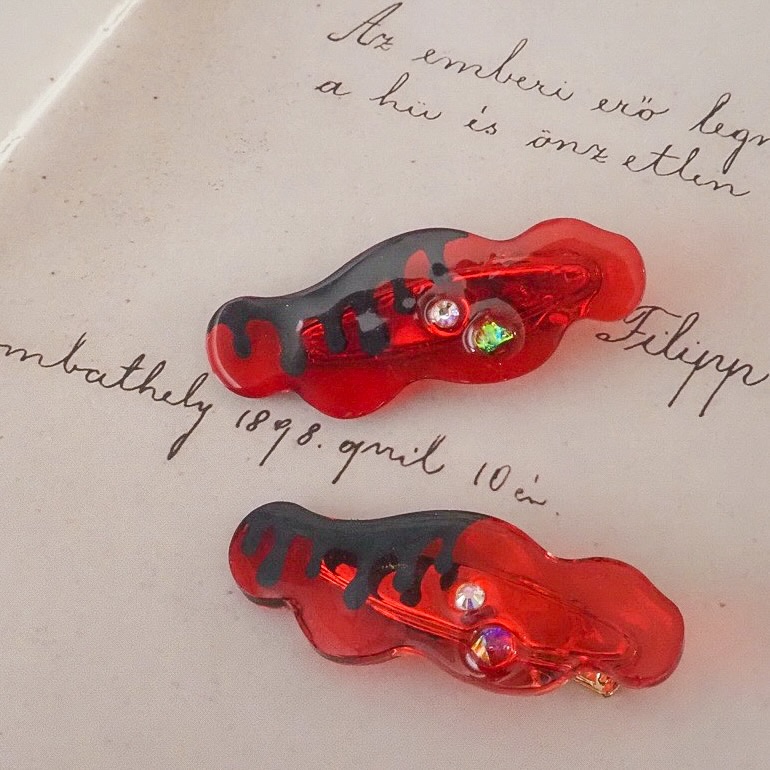 Az emberi erő legn
a hü és önzetlen
Filipp
mbathely 1898. april 10 én.